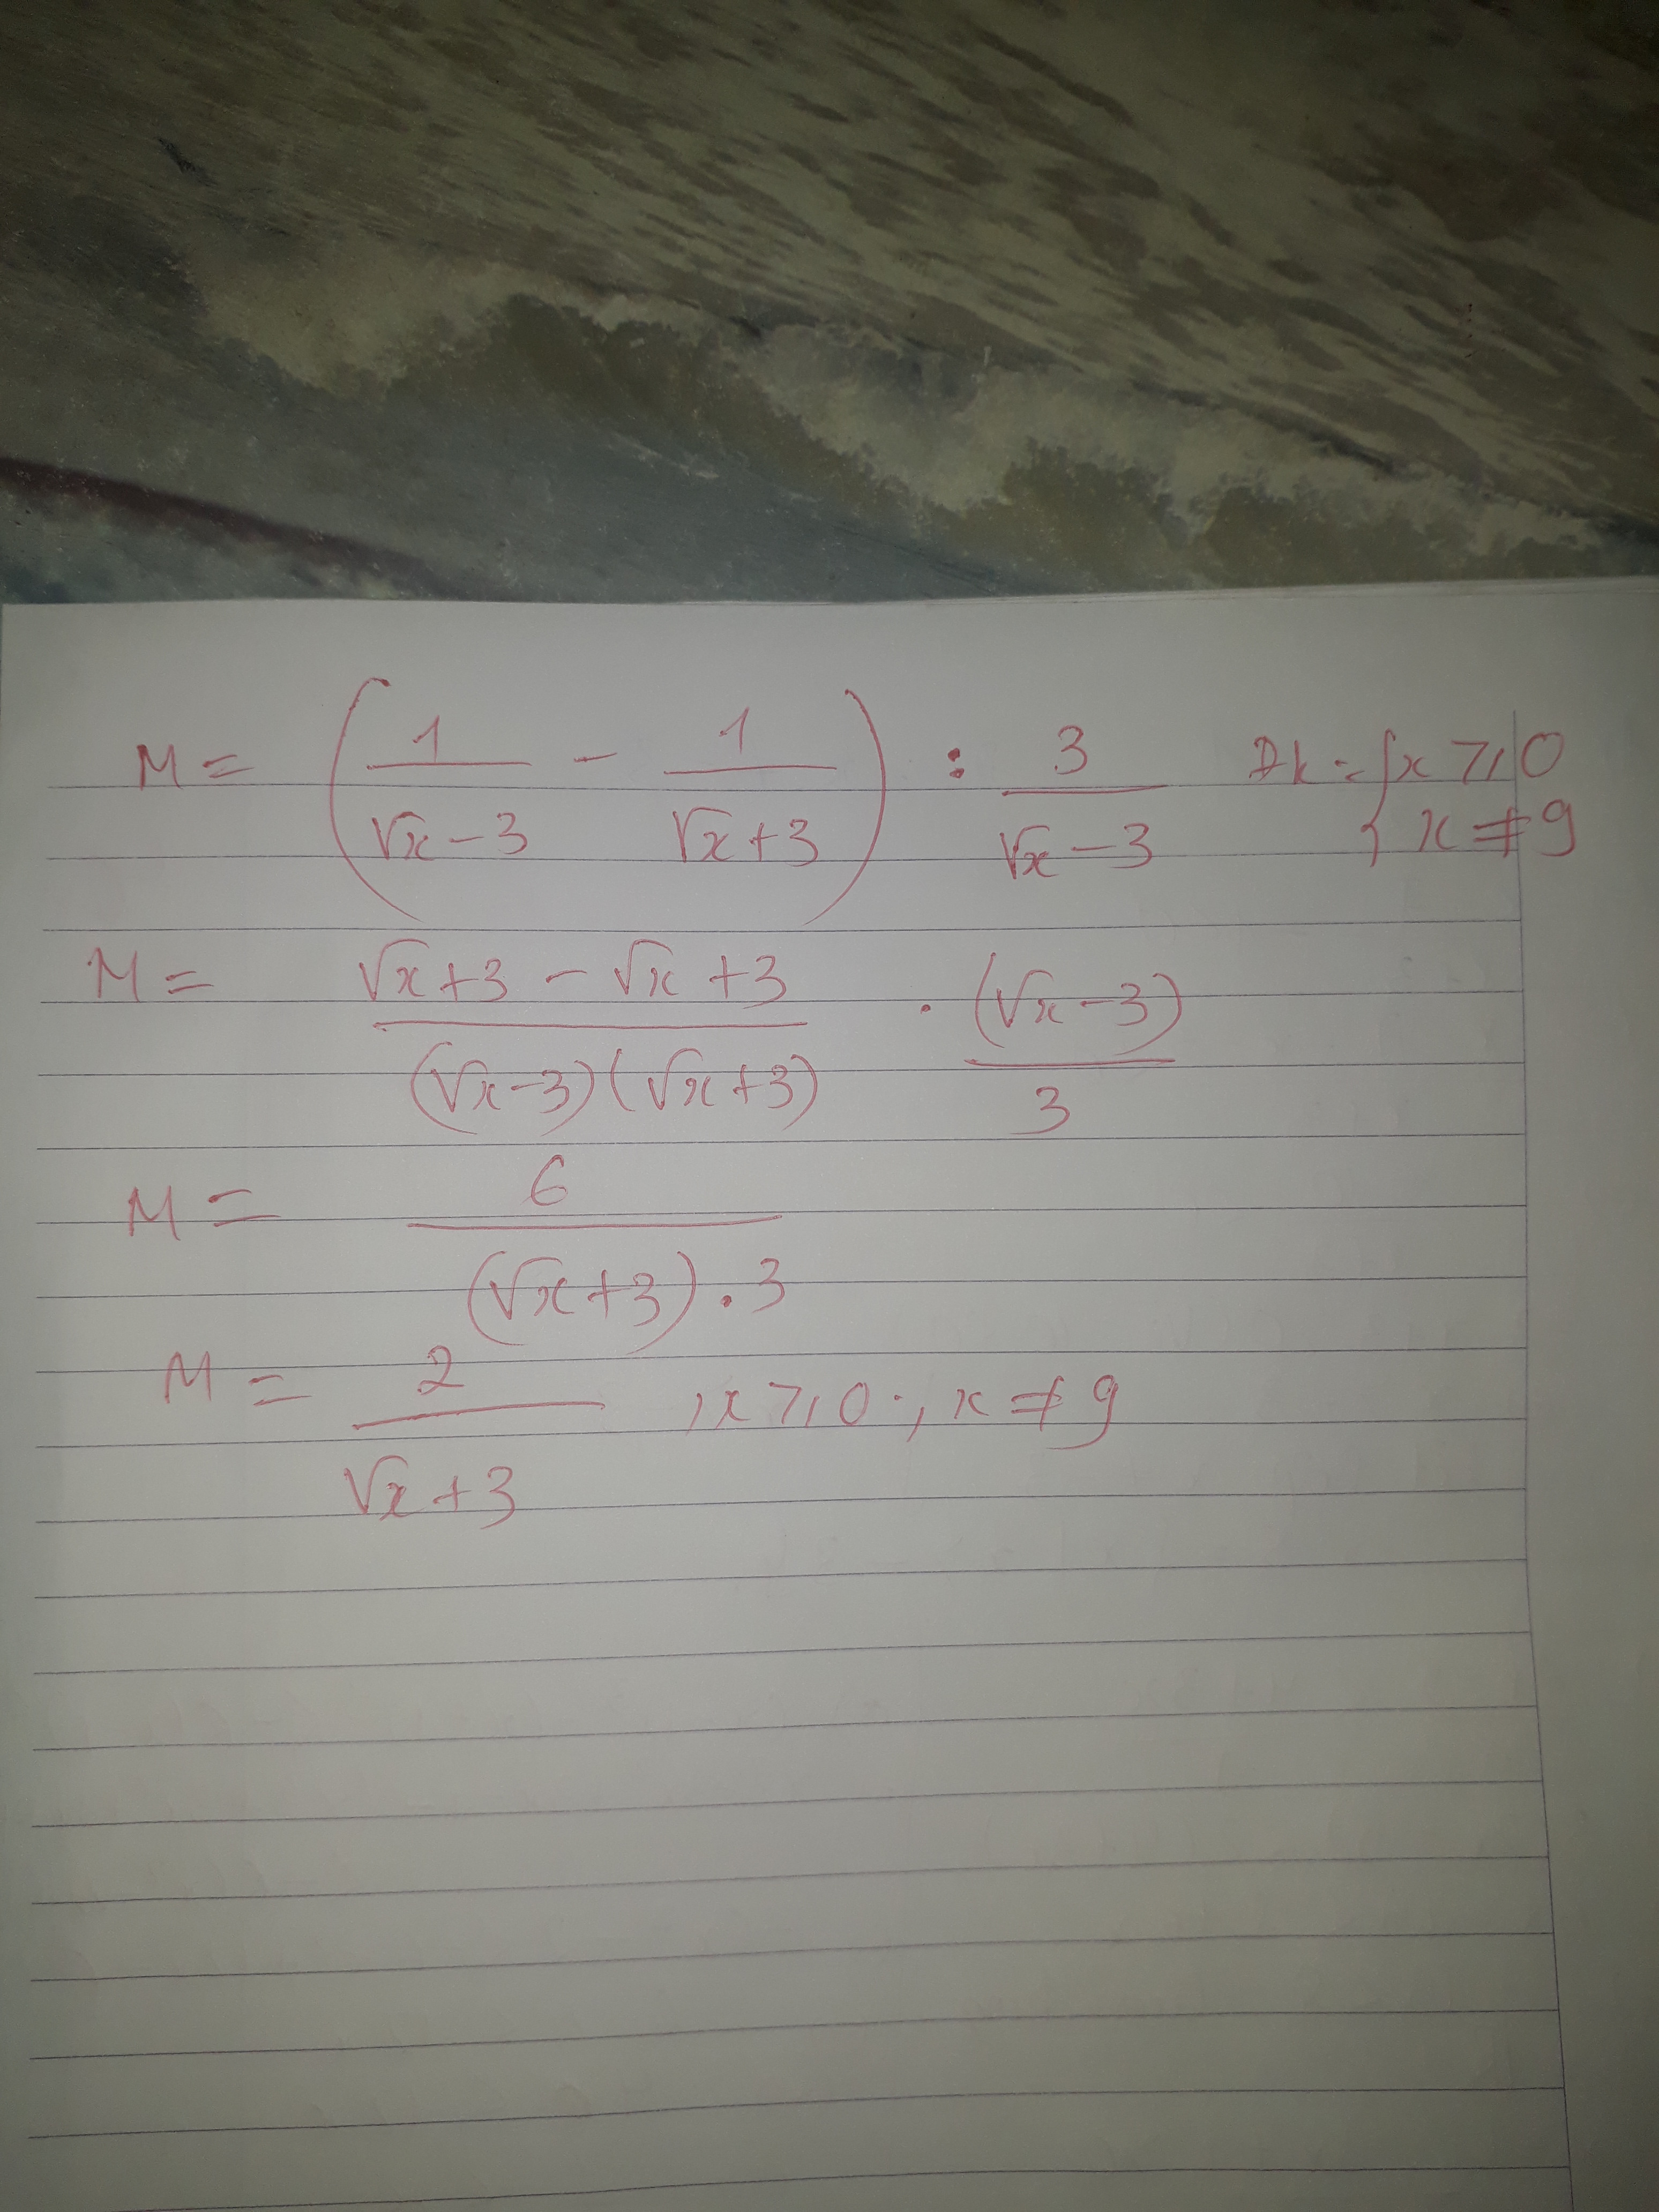 M = (1/(√x − 3) − 1/(√x + 3)) : 3/(√x − 3) Đk = { x ⩾ 0 { x ≠ 9
M = (√x + 3 − √x + 3)/((√x − 3)(√x + 3)) . (√x − 3)/3
M = 6/((√x + 3) . 3)
M = 2/(√x + 3) , x ⩾ 0 ; x ≠ 9